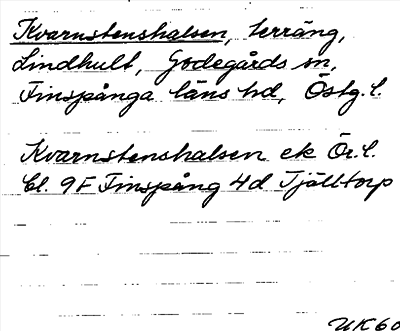 Kvarnstenshalsen, terräng,
Lindhult, Godegårds sn,
Finspånga läns hd, Östg. l.
Kvarnstenshalsen ek Ör. l.
bl. 9F Finspång 4d Tjälltorp
UK 60